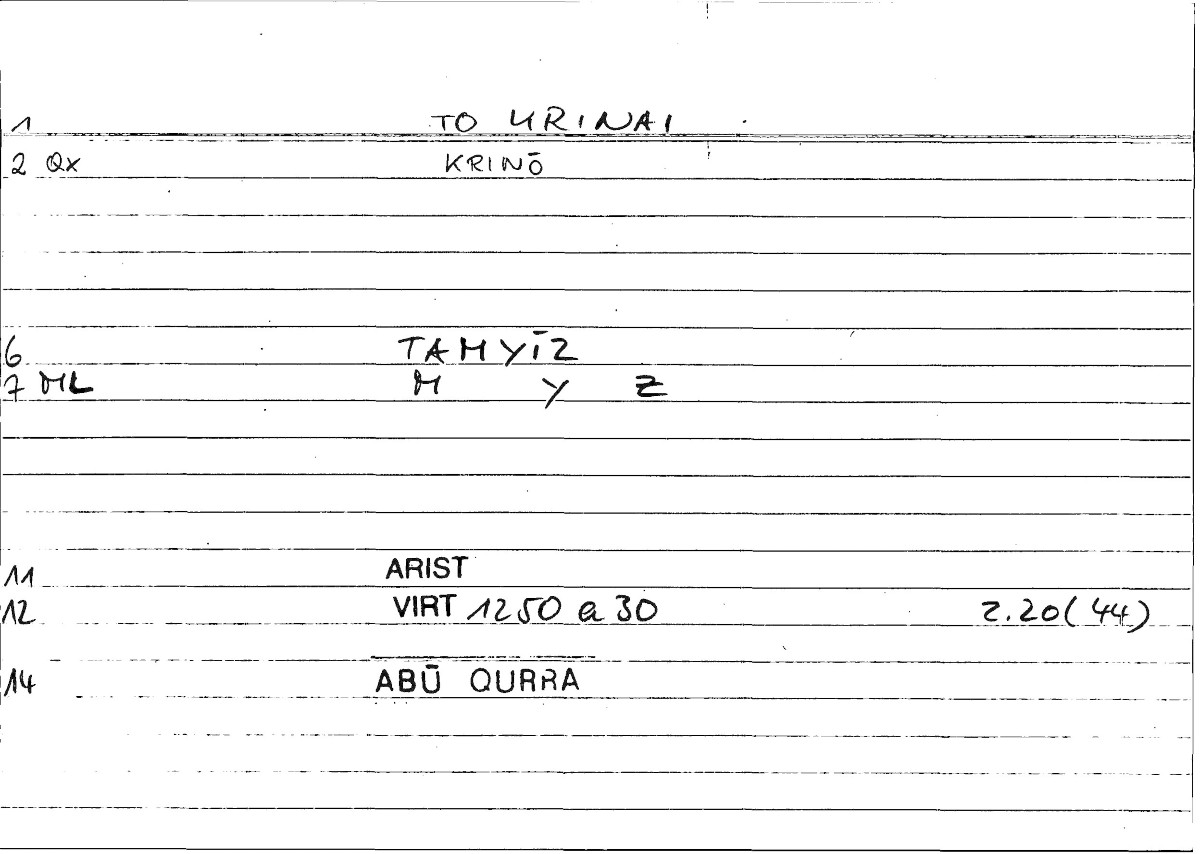 1 TO KRINAI
2 Qx KRINŌ
6 TAMYĪZ
7 ML M Y Z
11 ARIST
12 VIRT 1250 a 30 2.20(44)
14 ABŪ QURRA